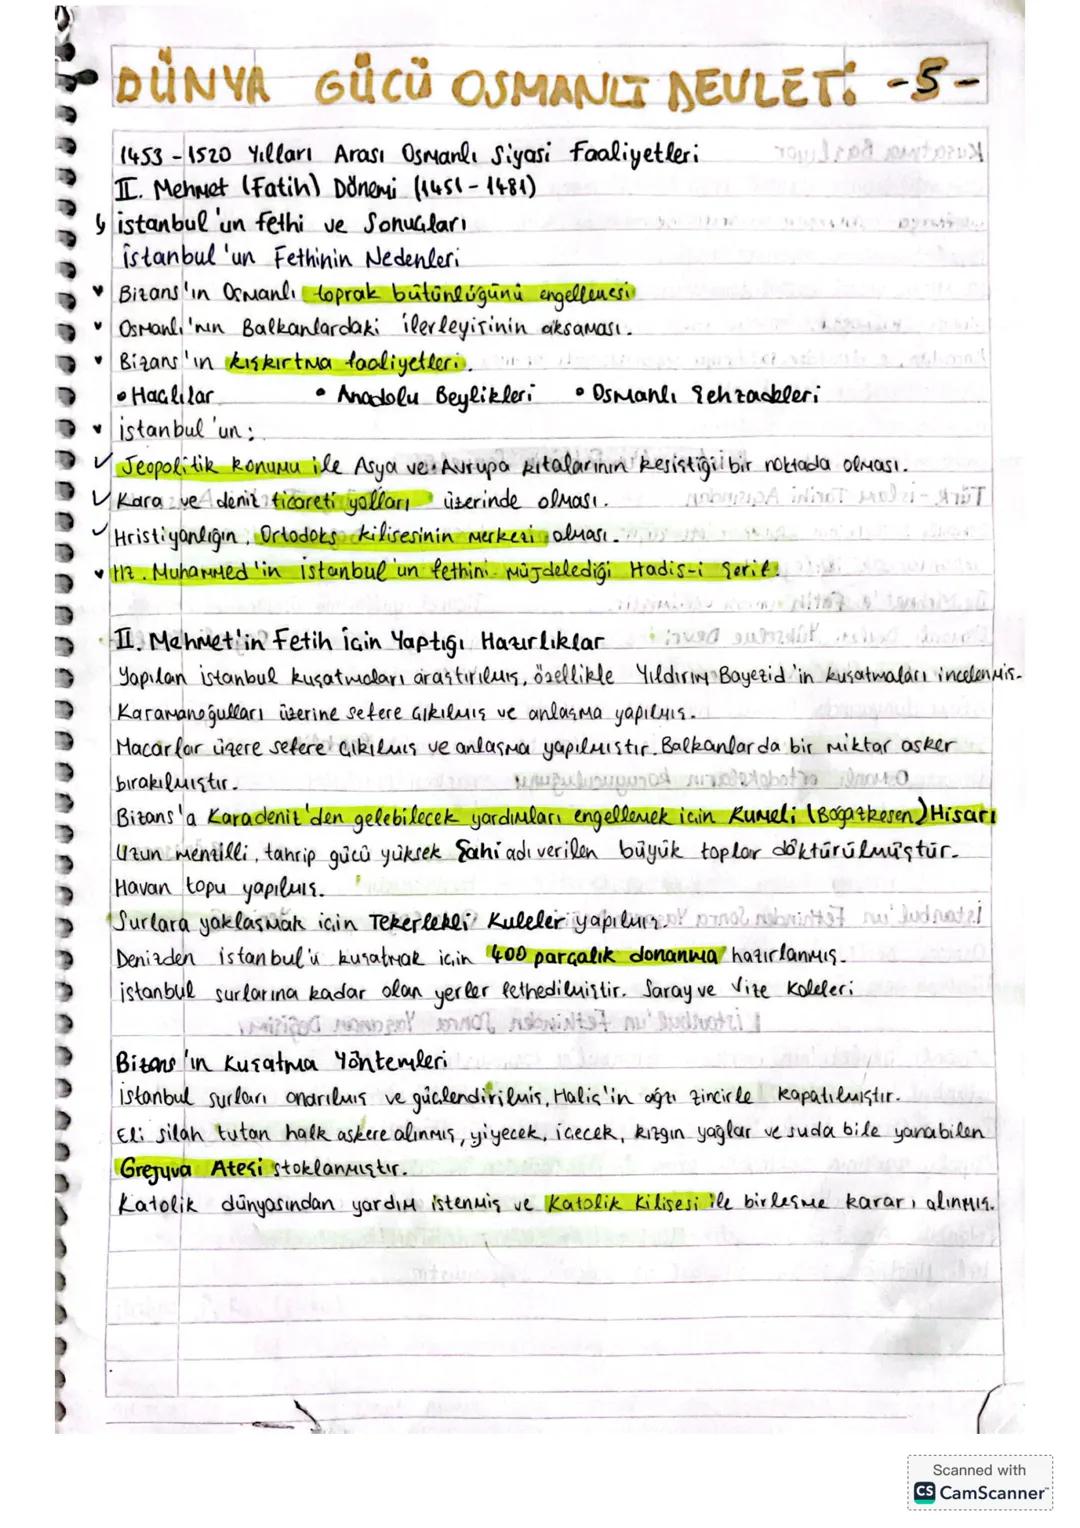 DÜNYA GÜCÜ OSMANLI DEVLETİ -5-
1453-1520 Yılları Arası Osmanlı Siyasi Faaliyetleri
II. Mehmet (Fatih) Dönemi (1451-1481)
İstanbul'un fethi ve Sonuçları
İstanbul'un Fethinin Nedenleri
Bizans'ın Osmanlı toprak bütünlüğünü engellemesi
Osmanlı'nın Balkanlardaki ilerleyişinin aksaması.
Bizans'ın kışkırtma faaliyetleri.
• Haçlılar • Anadolu Beylikleri • Osmanlı Şehzadeleri
İstanbul'un:
✓ Jeopolitik konumu ile Asya ve Avrupa kıtalarının kesiştiği bir noktada olması.
✓ Kara ve deniz ticareti yolları üzerinde olması.
✓ Hristiyanlığın, Ortodoks kilisesinin merkezi olması.
Hz. Muhammed'in İstanbul'un fethini müjdelediği Hadis-i Şerif.
II. Mehmet'in Fetih İçin Yaptığı Hazırlıklar
Yapılan İstanbul kuşatmaları araştırılmış, özellikle Yıldırım Bayezid'in kuşatmaları incelenmiş.
Karamanoğulları üzerine sefere çıkılmış ve anlaşma yapılmış.
Macarlar üzere sefere çıkılmış ve anlaşma yapılmıştır. Balkanlarda bir miktar asker
bırakılmıştır.
Bizans'a Karadeniz'den gelebilecek yardımları engellemek için Rumeli (Boğazkesen) Hisarı
Uzun menzilli, tahrip gücü yüksek Şahi adı verilen büyük toplar döktürülmüştür.
Havan topu yapılmış.
Surlara yaklaşmak için Tekerlekli Kuleler yapılmış.
Denizden İstanbul'u kuşatmak için 400 parçalık donanma hazırlanmış.
İstanbul surlarına kadar olan yerler fethedilmiştir. Saray ve Vize Kaleleri
Bizans'ın Kuşatma Yöntemleri
İstanbul surları onarılmış ve güçlendirilmiş, Haliç'in ağzı zincirle kapatılmıştır.
Eli silah tutan halk askere alınmış, yiyecek, içecek, kızgın yağlar ve suda bile yanabilen
Grejuva Ateşi stoklanmıştır.
Katolik dünyasından yardım istenmiş ve Katolik Kilisesi ile birleşme kararı alınmış.
Scanned with
CS CamScanner